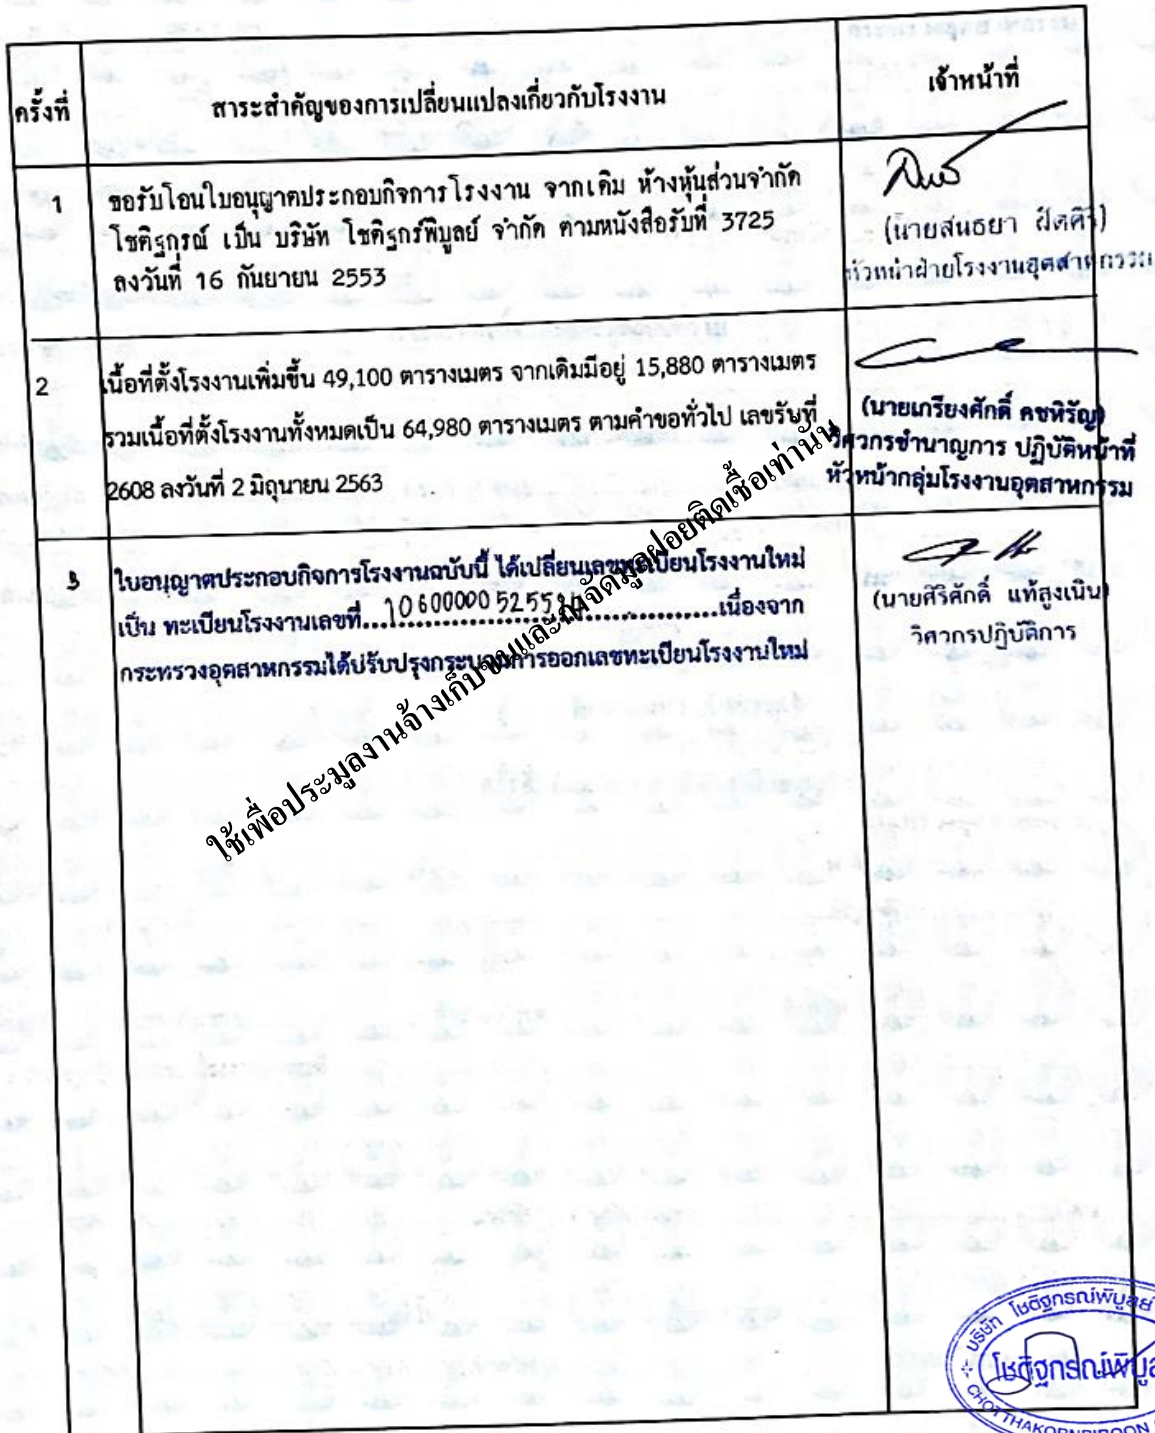 ครั้งที่ สาระสำคัญของการเปลี่ยนแปลงเกี่ยวกับโรงงาน เจ้าหน้าที่
1 ขอรับโอนใบอนุญาตประกอบกิจการโรงงาน จากเดิม ห้างหุ้นส่วนจำกัด
โชติฐกรณ์ เป็น บริษัท โชติฐกรณ์พิบูลย์ จำกัด ตามหนังสือรับที่ 3725
ลงวันที่ 16 กันยายน 2553
(นายสนธยา
หัวหน้าฝ่ายโรงงานอุตสาหกรรม
2 เนื้อที่ตั้งโรงงานเพิ่มขึ้น 49,100 ตารางเมตร จากเดิมมีอยู่ 15,880 ตารางเมตร
รวมเนื้อที่ตั้งโรงงานทั้งหมดเป็น 64,980 ตารางเมตร ตามคำขอทั่วไป เลขรับที่
2608 ลงวันที่ 2 มิถุนายน 2563
(นายเกรียงศักดิ์ คชหิรัญ)
วิศวกรชำนาญการ ปฏิบัติหน้าที่
หัวหน้ากลุ่มโรงงานอุตสาหกรรม
3 ใบอนุญาตประกอบกิจการโรงงานฉบับนี้ ได้เปลี่ยนเลขทะเบียนโรงงานใหม่
เป็น ทะเบียนโรงงานเลขที่...เนื่องจาก
กระทรวงอุตสาหกรรมได้ปรับปรุงกระบวนการออกเลขทะเบียนโรงงานใหม่
(นายศิริศักดิ์ แท้สูงเนิน)
วิศวกรปฏิบัติการ
ใช้เพื่อประมูลงานจ้างเก็บขนและกำจัดมูลฝอยติดเชื้อเท่านั้น
บริษัท โชติฐกรณ์พิบูลย์